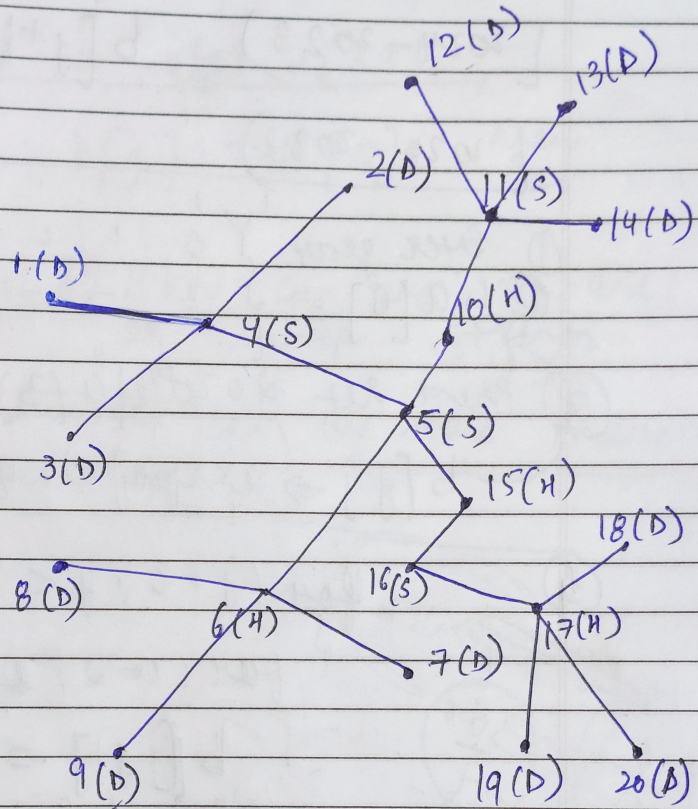 12(D)
13(D)
2(D)
11(S)
14(D)
1(D)
10(H)
4(S)
5(S)
3(D)
15(H)
18(D)
8(D)
16(S)
6(H)
17(H)
7(D)
9(D)
19(D)
20(D)